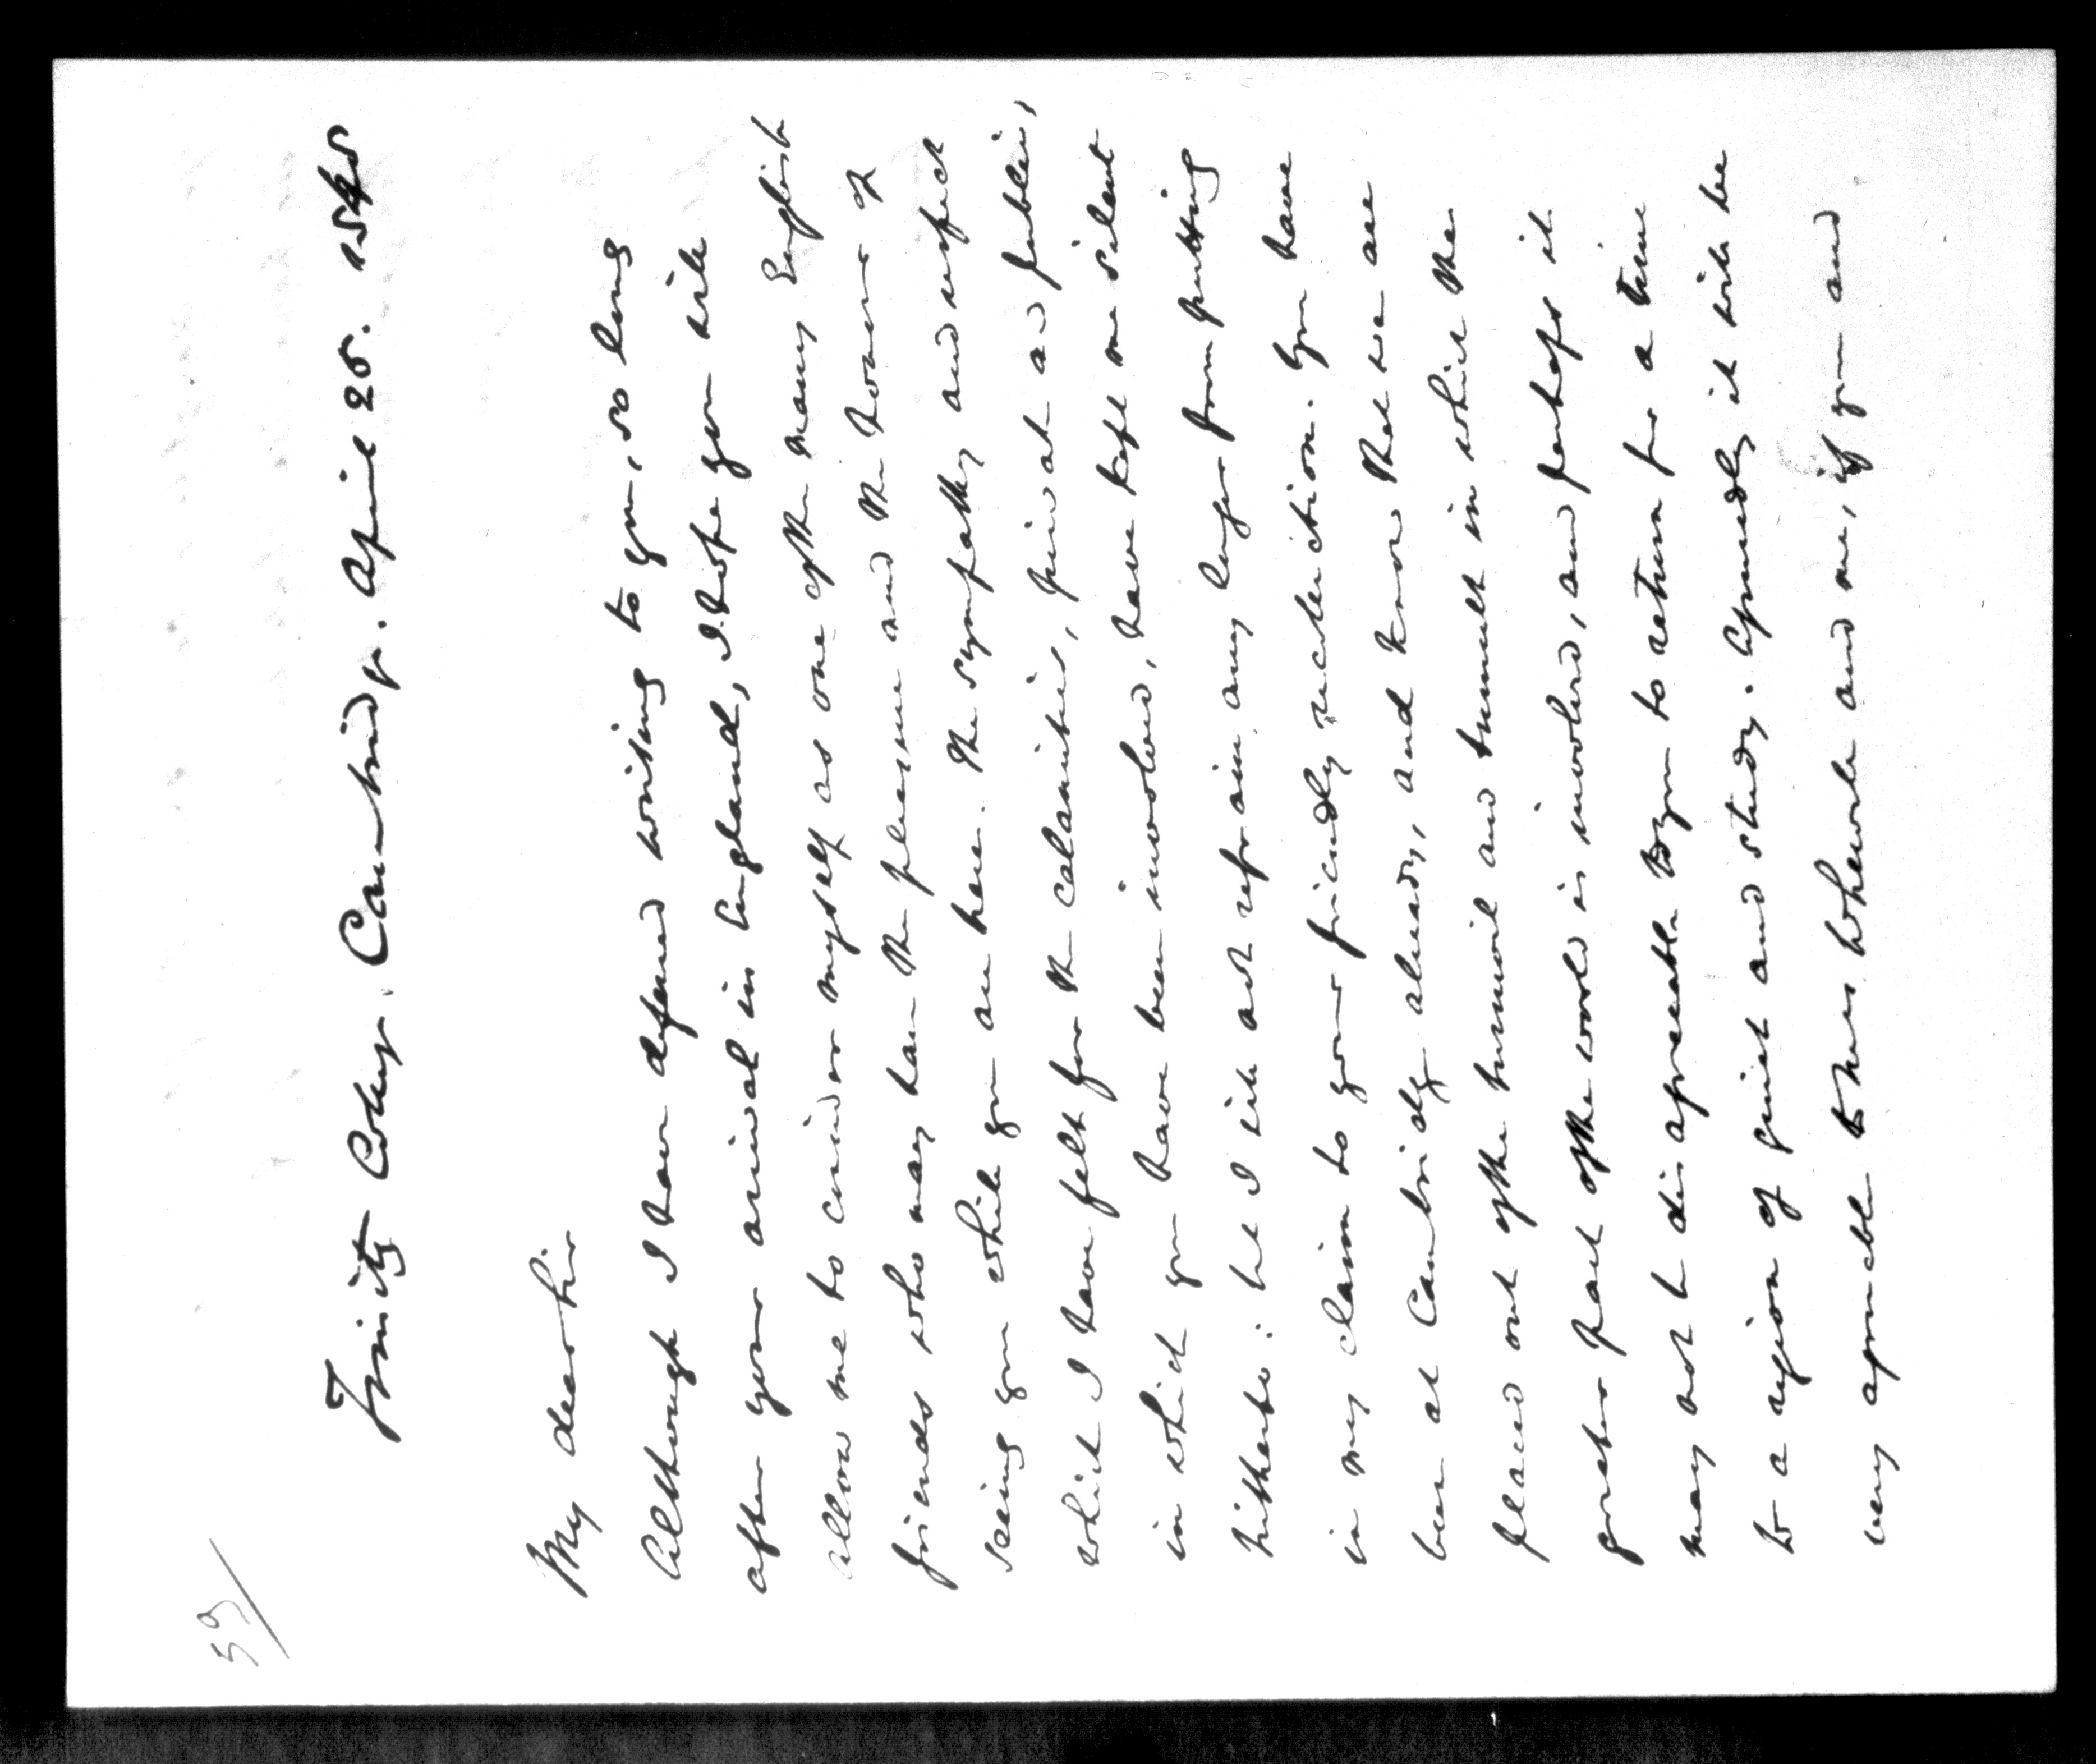 59/
Trinity College, Cambridge. April 25. 1848
My dear Sir
Although I have defered writing to you, so long
after your arrival in England, I hope you will
allow me to consider myself as one of the many English
friends who may have the pleasure and the honour of
seeing you while you are here. The sympathy and respect
which I have felt for the calamities, privat and public,
in which you have been involved, have kept me silent
hitherto: but I will not refrain any longer from putting
in my claim to your friendly recollection. You have
been at Cambridge already, and know that we are
placed out of the turmoil and tumult in which the
greater part of the world is involved, and perhaps it
may not be disagreeable to you to return for a time
to a region of quiet and study. Assuredly it will be
very agreeable to Mrs Whewell and me, if you and